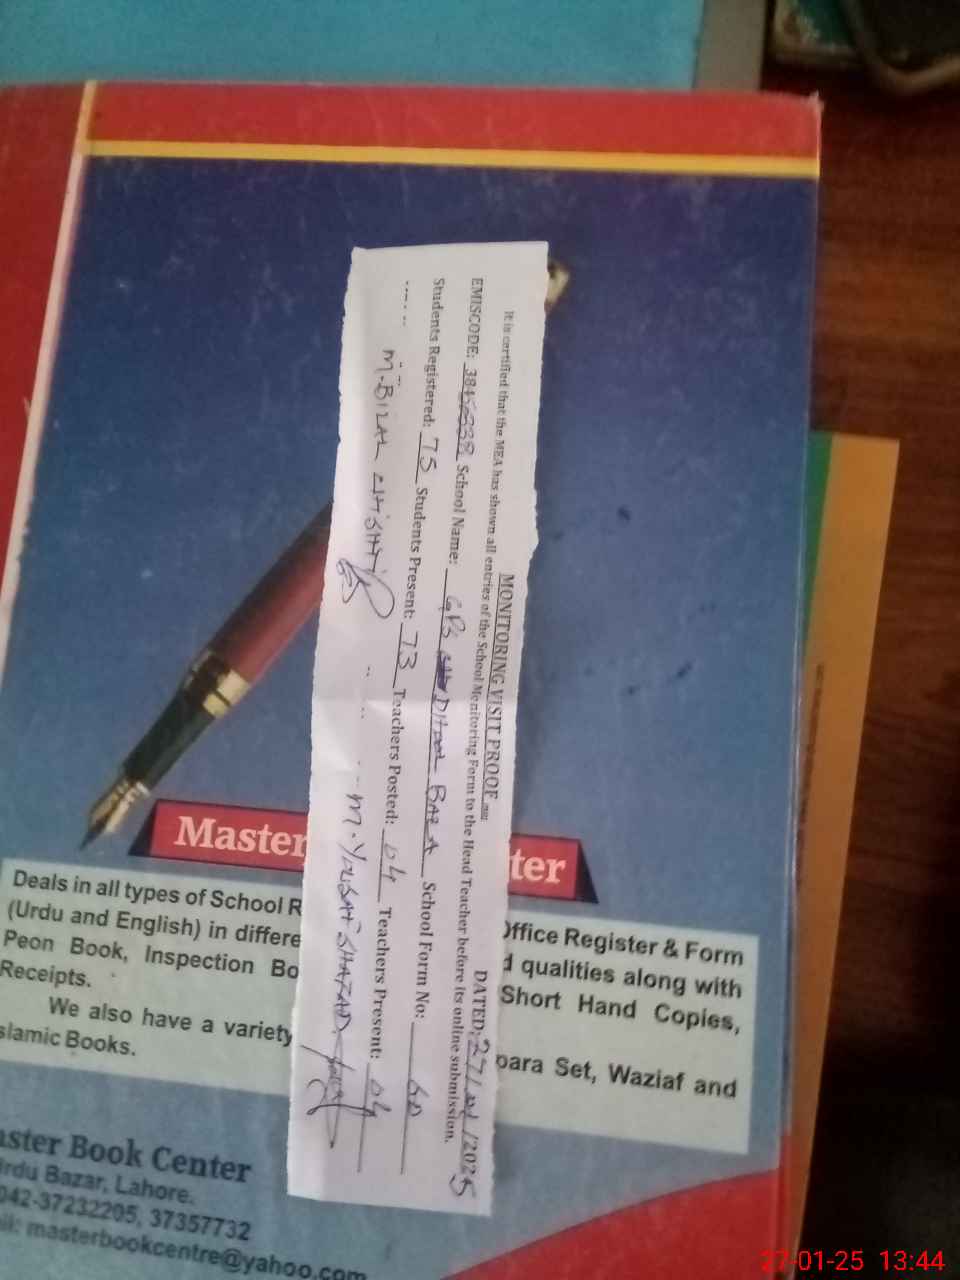 MONITORING VISIT PROOF
DATED: 27/01/2025
It is certified that the MEA has shown all entries of the School Monitoring Form to the Head Teacher before its online submission.
EMISCODE: School Name: GPS BAZA School Form No: 60
Students Registered: 75 Students Present: 73 Teachers Posted: 04 Teachers Present: 04
M. BILAL CHISHTI
M. YOUSAF SHAHZAD
Master ter
Deals in all types of School R ffice Register & Form
(Urdu and English) in differe d qualities along with
Peon Book, Inspection Bo Short Hand Copies,
Receipts.
We also have a variety para Set, Waziaf and
slamic Books.
aster Book Center
Urdu Bazar, Lahore.
042-37232205, 37357732
il: masterbookcentre@yahoo.com
27-01-25 13:44